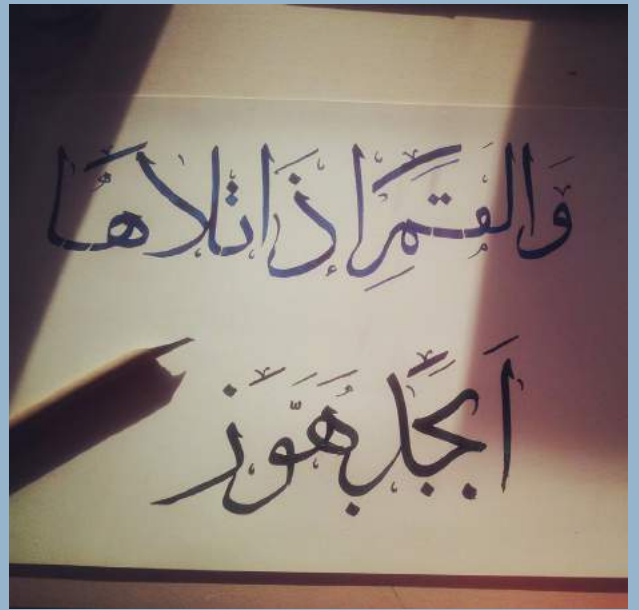 وَالْقَمَرِ إِذَا تَلَاهَا
اَبْجَدْ هَوَّزْ